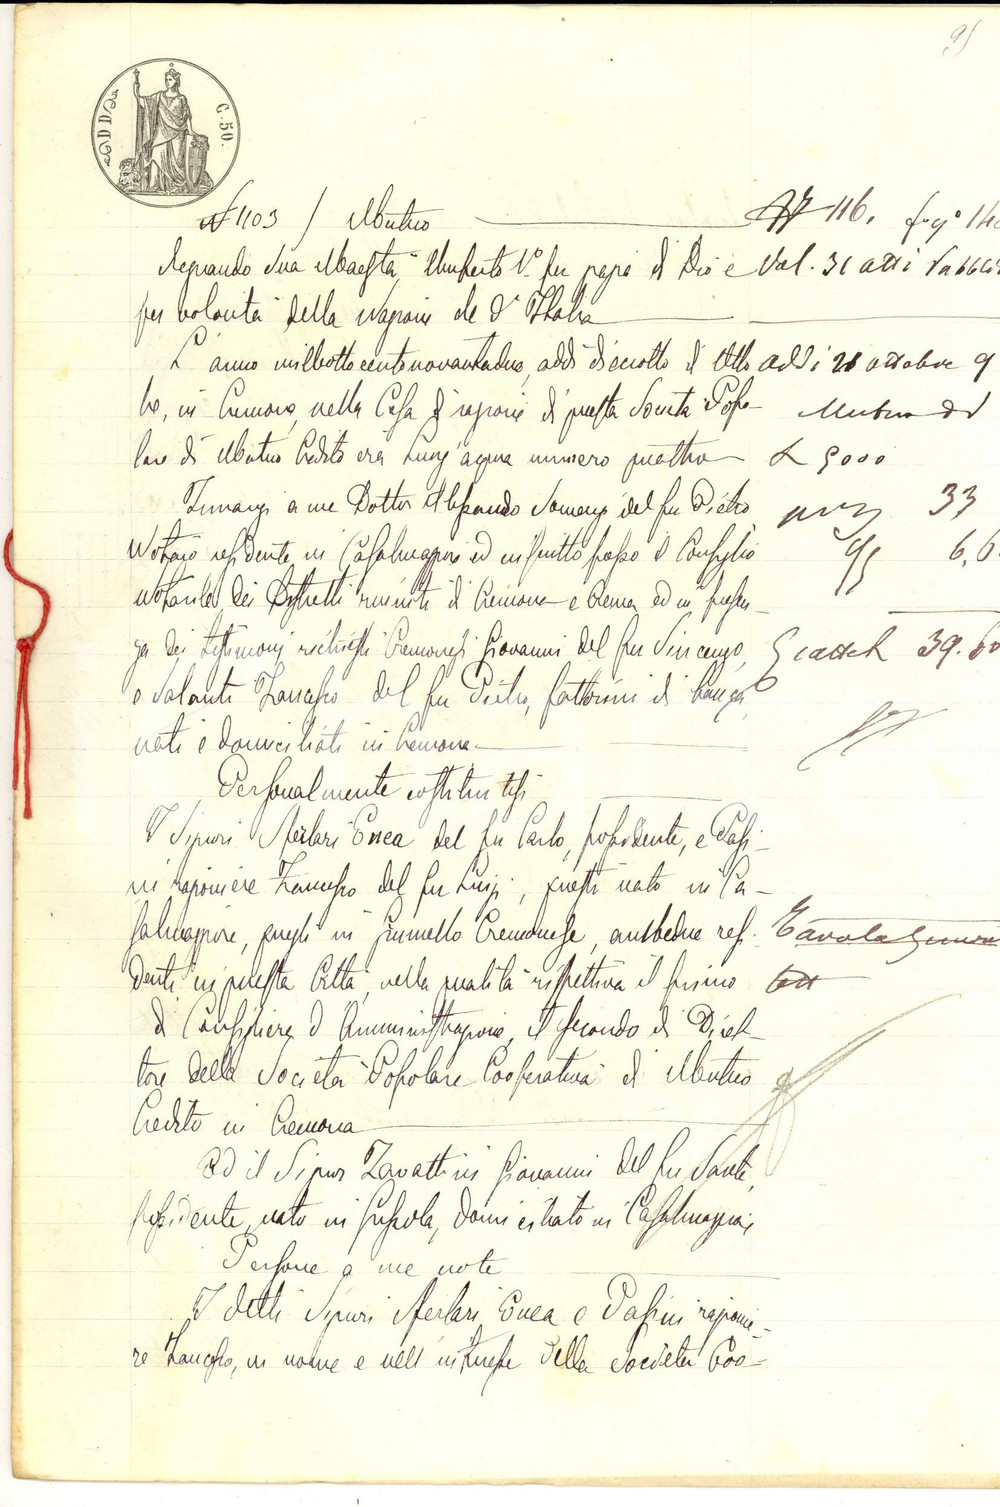 C. 50.
N 1103 / Mutuo
N 116. fog°
Regnando Sua Maestà Umberto I° per grazia di Dio e
Vol. 31 atti Pubblici
per volontà della Nazione Re d'Italia
L'anno milleottocentonovantadue, addì dieciotto di Otto
addì 21 ottobre 9
bre, in Cremona, nella Casa di ragione di questa Società Popo-
Mutuo di
lare di Mutuo Credito era Lung'acqua numero quattro
L 5000
Innanzi a me Dottor Alessandro del fu Pietro
33
Notaio residente in Casalmaggiore ed inscritto presso il Consiglio
6,6
notarile dei Distretti riuniti di Cremona e Crema ed in presen-
za dei testimoni richiesti Cremonesi Giovanni del fu Vincenzo,
39.60
e Valenti Francesco del fu Pietro, fattorini di banca,
nati e domiciliati in Cremona
Personalmente costituitisi
I Signori Ferlari Enea del fu Carlo, possidente, e Passi-
ni ragioniere Francesco del fu Luigi, questi nato in Ca-
salmaggiore, quegli in Grumello Cremonese, ambedue resi-
Tavola
denti in questa Città, nella qualità rispettiva il primo
di Consigliere d'Amministrazione, il secondo di Diret-
tore della Società Popolare Cooperativa di Mutuo
Credito in Cremona
Ed il Signor Zavattini Giovanni del fu Sante,
possidente, nato in Gussola, domiciliato in Casalmaggiore
Persone a me note
I detti Signori Ferlari Enea e Passini ragionie-
re Francesco, in nome e nell'interesse della Società Coo-